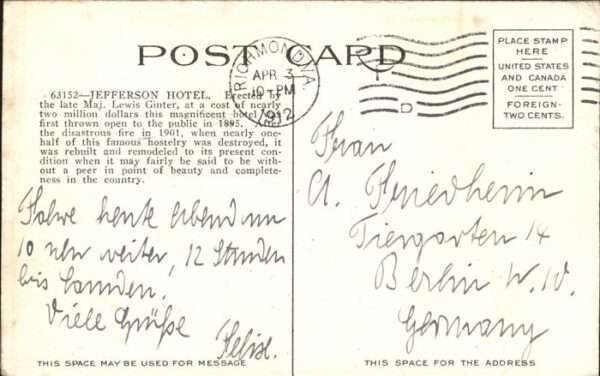 POST CARD
63152—JEFFERSON HOTEL. Erected by
the late Maj. Lewis Ginter, at a cost of nearly
two million dollars this magnificent hotel was
first thrown open to the public in 1895. After
the disastrous fire in 1901, when nearly one-
half of this famous hostelry was destroyed, it
was rebuilt and remodeled to its present con-
dition when it may fairly be said to be with-
out a peer in point of beauty and complete-
ness in the country.
RICHMOND, VA.
APR 3
10 PM
1912
D
PLACE STAMP
HERE
UNITED STATES
AND CANADA
ONE CENT
FOREIGN-
TWO CENTS.
Fahre heute Abend um
10 uhr weiter, 12 Stunden
bis Camden.
Viele Grüße
Felix.
Frau
A. Friedheim
Tiergarten 14
Berlin W. W.
Germany
THIS SPACE MAY BE USED FOR MESSAGE
THIS SPACE FOR THE ADDRESS